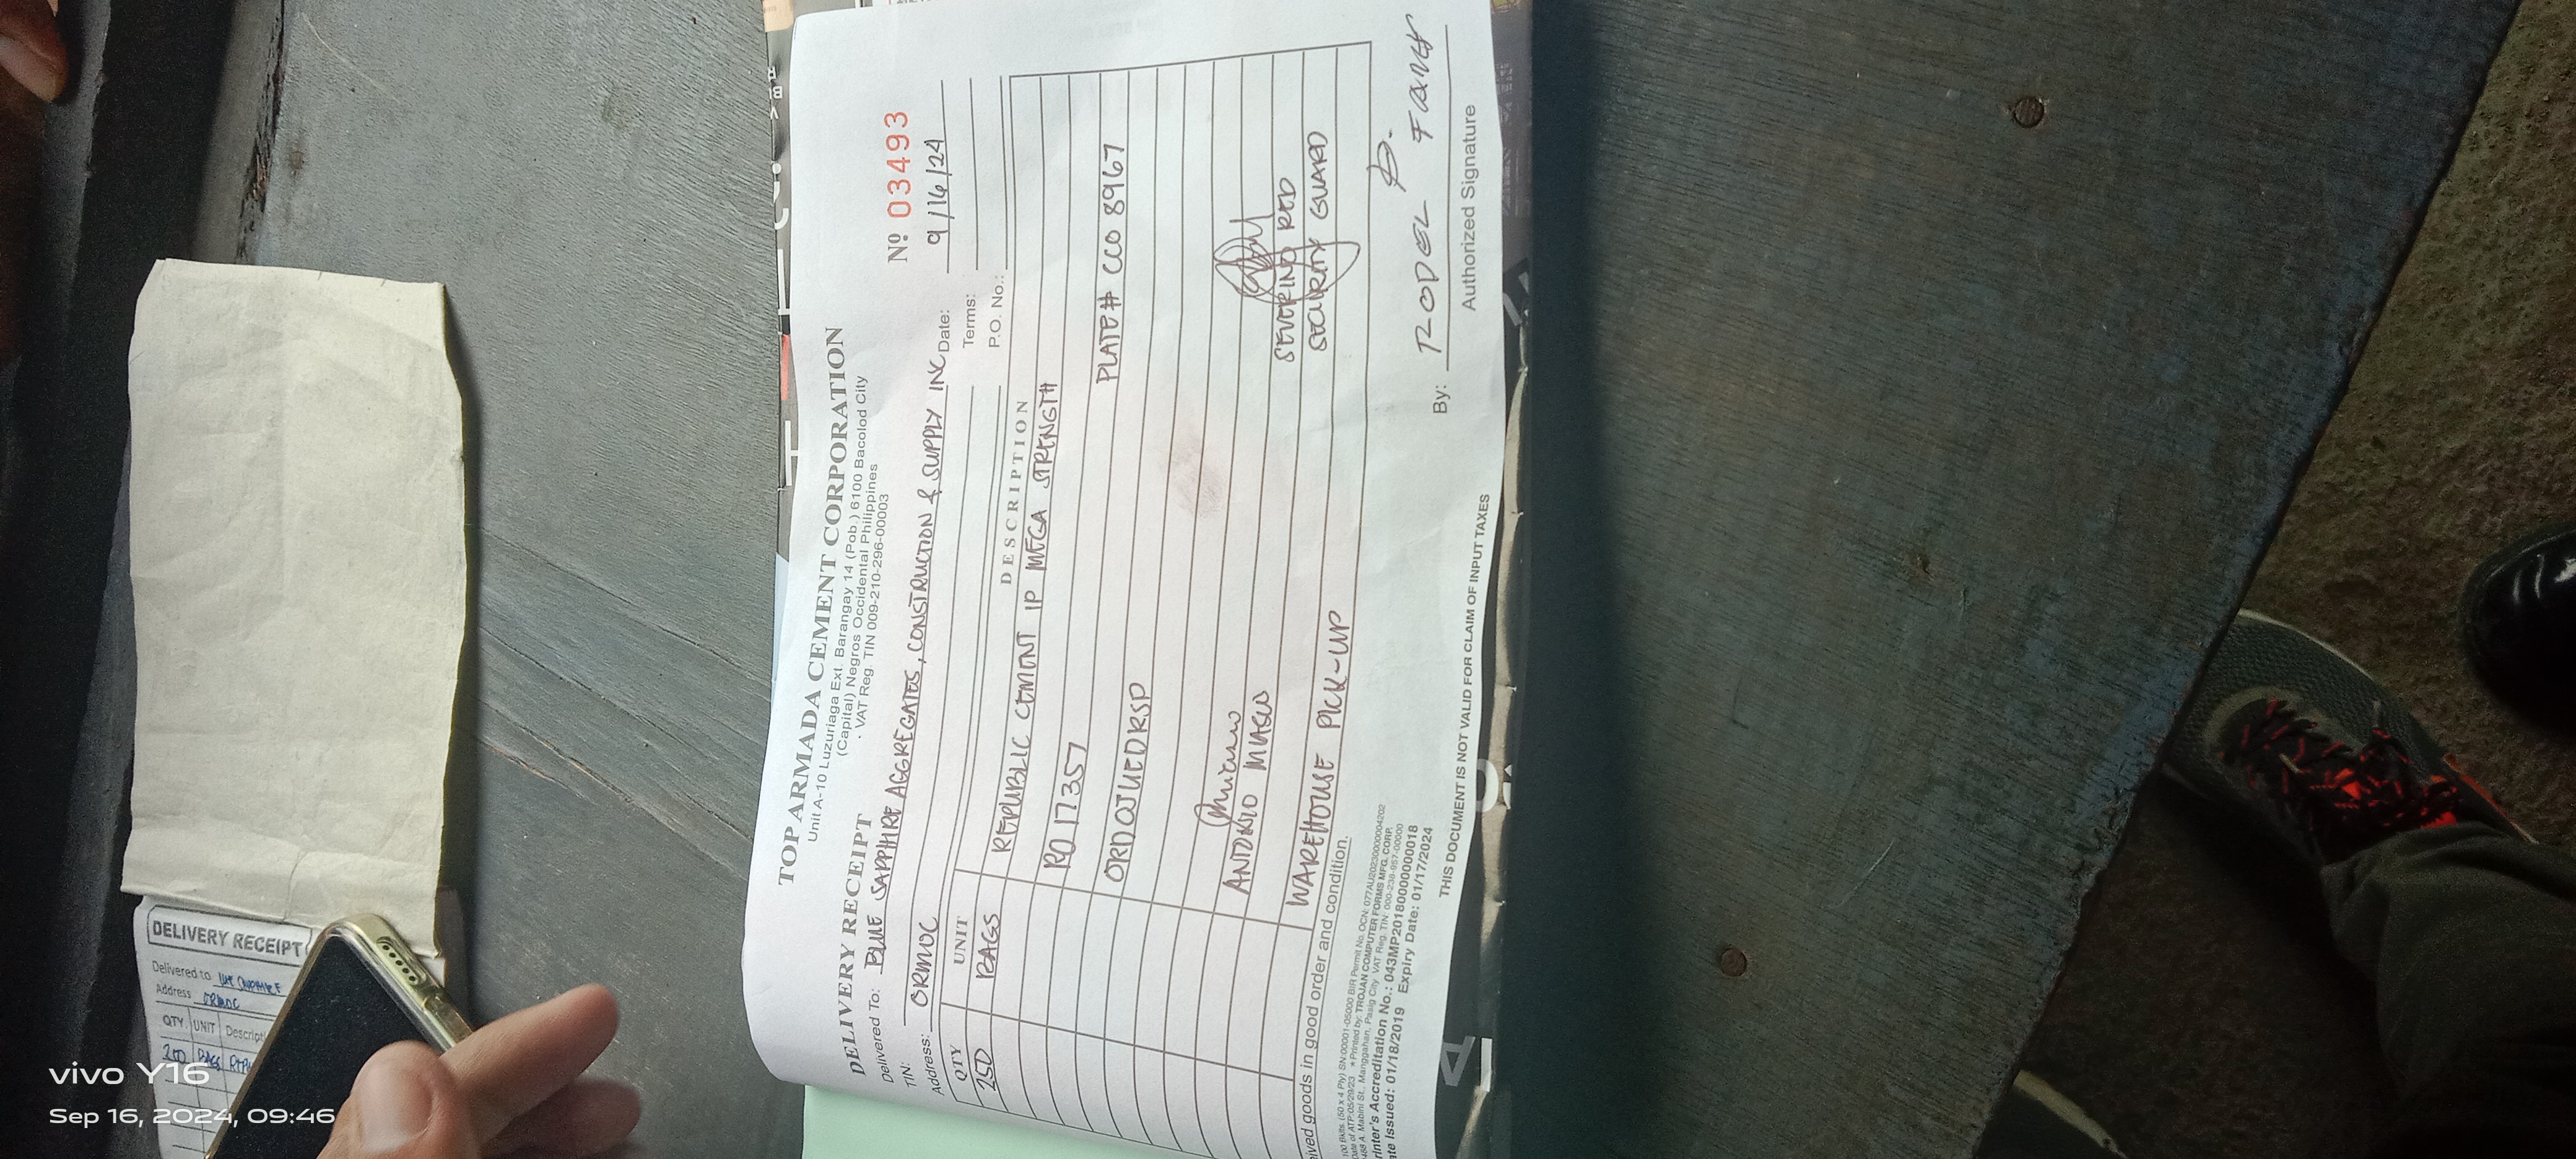 TOP ARMADA CEMENT CORPORATION
Unit A-10 Luzuriaga Ext. Barangay 14 (Pob.) 6100 Bacolod City
(Capital) Negros Occidental Philippines
VAT Reg. TIN 009-210-296-00003
DELIVERY RECEIPT
Nº 03493
Delivered To: BLUE SAPPHIRE AGGREGATES, CONSTRUCTION & SUPPLY INC
Date: 9/16/24
TIN:
Terms:
Address: ORMOC
P.O. No.:
QTY UNIT DESCRIPTION
250 BAGS REPUBLIC CEMENT IP MEGA STRENGTH
RO 17357
PLATE# CCO 8967
ORDOJUEDRSD
ANTONIO
SEVERINO RED
SECURITY GUARD
WAREHOUSE PICK-UP
ived goods in good order and condition.
By: RODEL
Authorized Signature
100 Bklts. (50 x 4 Ply) SN:00001-05000 BIR Permit No. OCN: 077AU20230000004202
Date of ATP:05/29/23 * Printed by: TROJAN COMPUTER FORMS MFG. CORP.
488 A. Mabini St., Manggahan, Pasig City VAT Reg. TIN: 000-238-957-00000
rinter's Accreditation No.: 043MP20180000000018
ate Issued: 01/18/2019 Expiry Date: 01/17/2024
THIS DOCUMENT IS NOT VALID FOR CLAIM OF INPUT TAXES
DELIVERY RECEIPT
Delivered to
Address ORMOC
QTY. UNIT Descript
250 BAGS
vivo Y16
Sep 16, 2024, 09:46